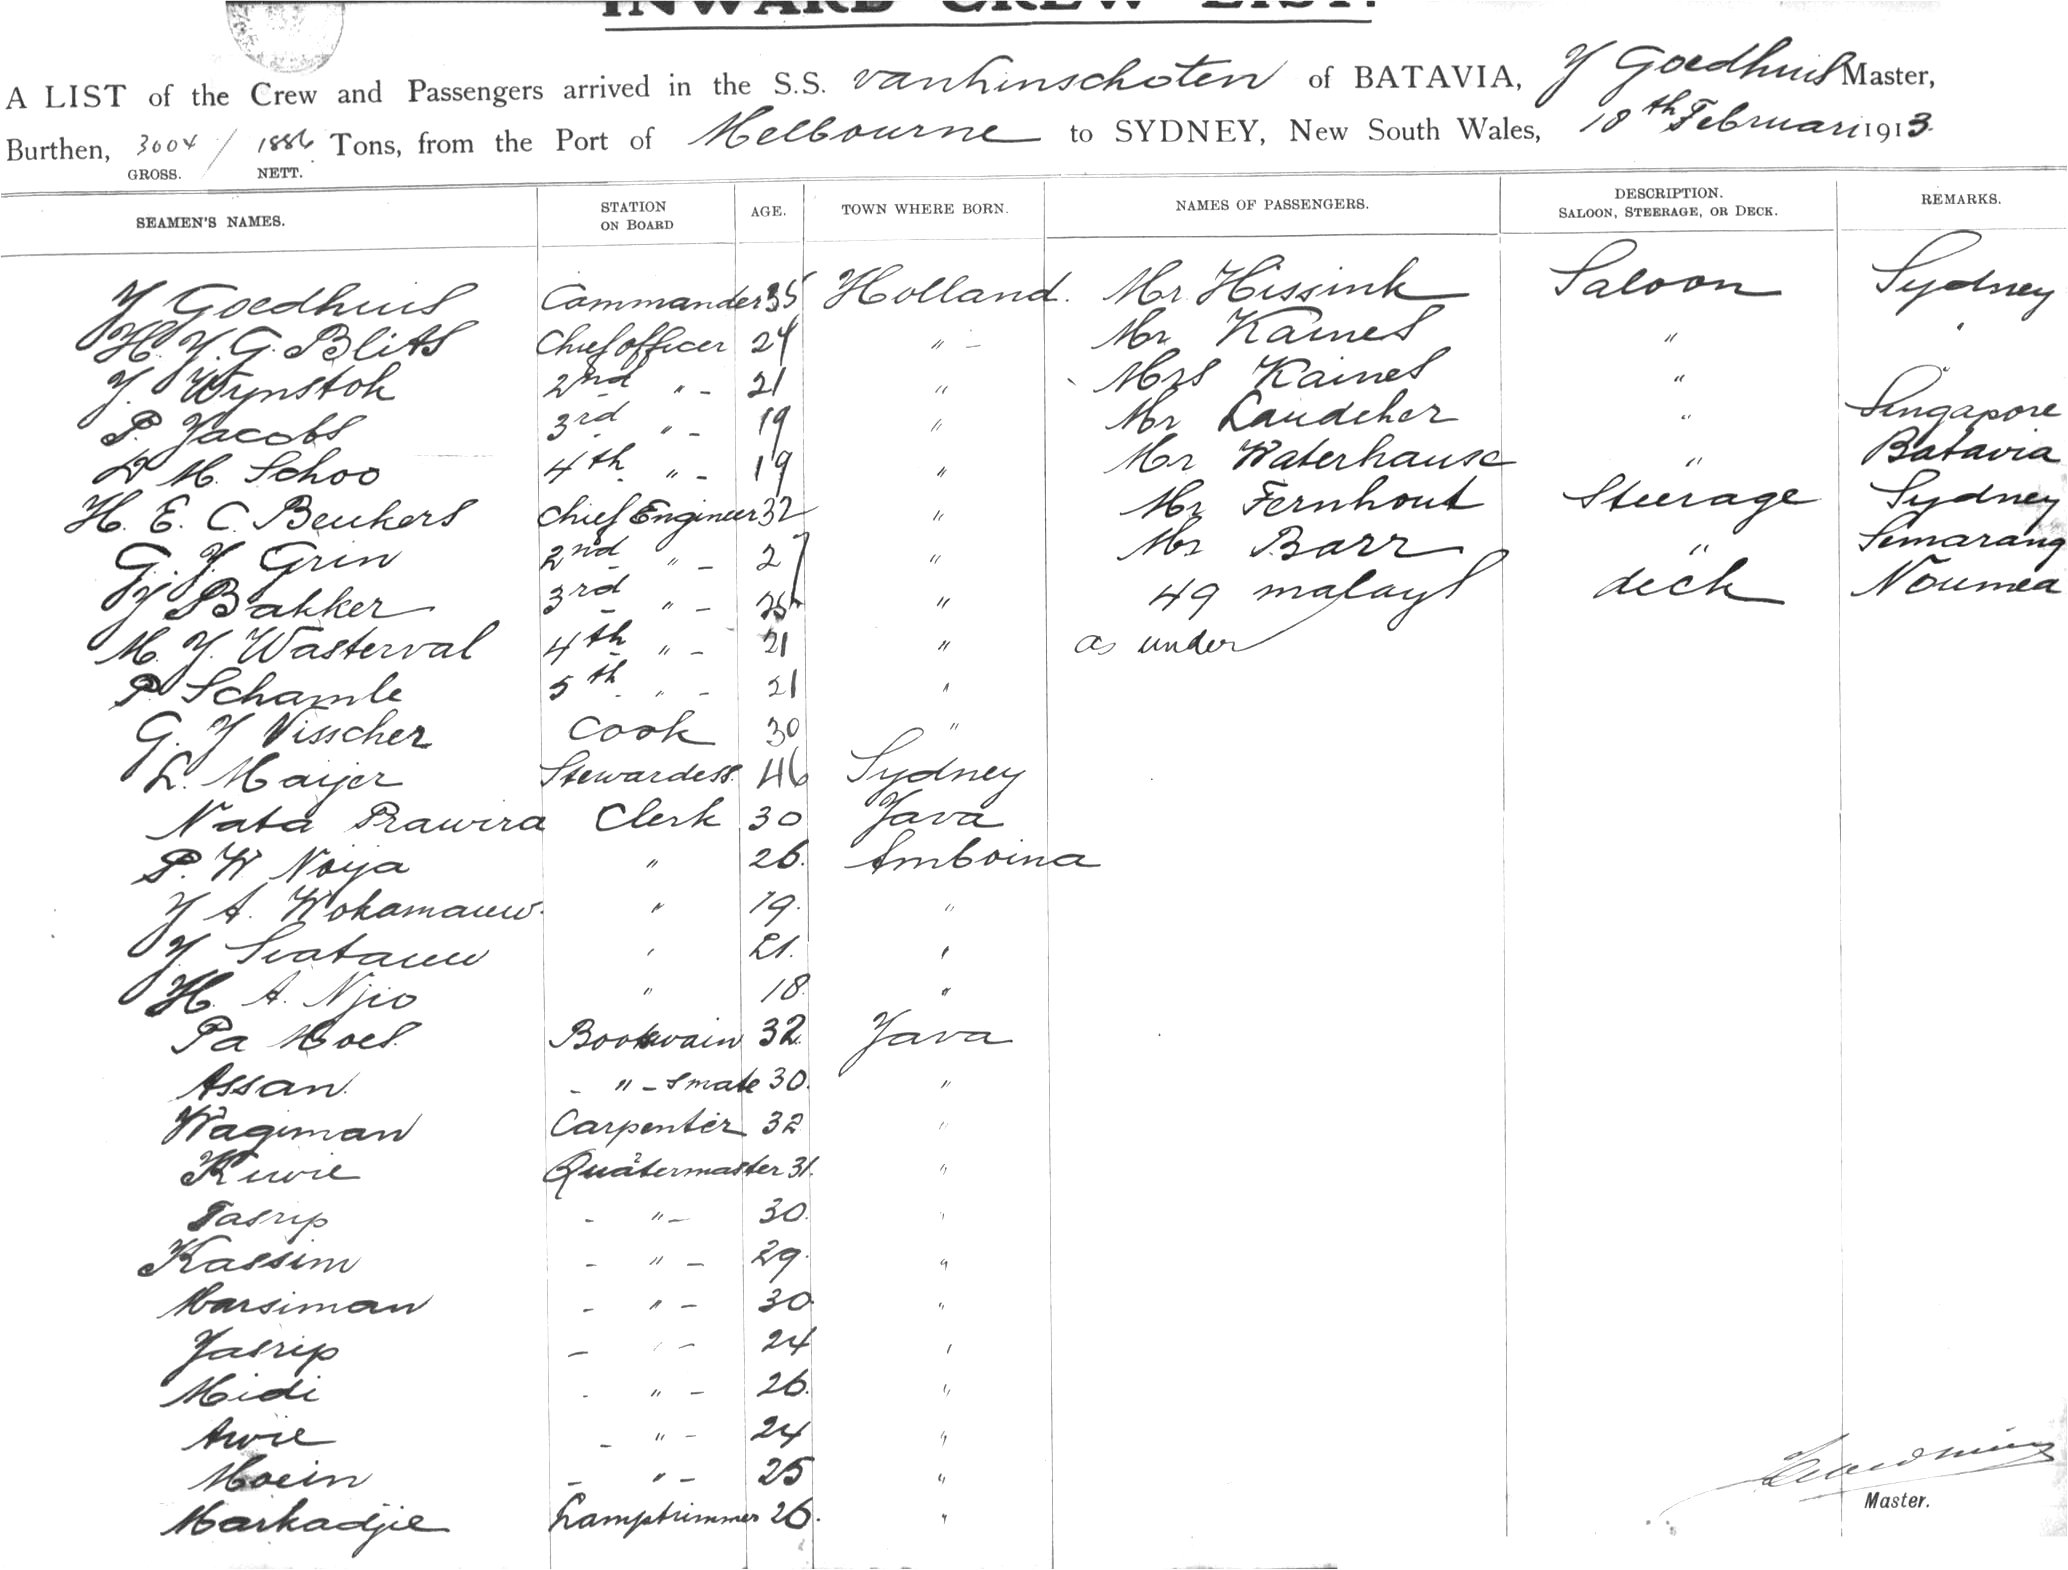 INWARD CREW LIST.
A LIST of the Crew and Passengers arrived in the S.S. van Linschoten of BATAVIA, J Goedhuis Master,
Burthen, 3004 / 1886 Tons, from the Port of Melbourne to SYDNEY, New South Wales, 18th Februari 1913.
GROSS. NETT.
SEAMEN'S NAMES. STATION ON BOARD AGE. TOWN WHERE BORN. NAMES OF PASSENGERS. DESCRIPTION. SALOON, STEERAGE, OR DECK. REMARKS.
J Goedhuis Commander 35 Holland. Mr Hissink Saloon Sydney
H. J. G. Blits Chief officer 24 " - Mr Kaines " "
J. Wynstok 2nd " - 21 " Mrs Kaines " "
P. Jacobs 3rd " - 19 " Mr " Singapore
M. Schoo 4th " - 19 " Mr Waterhause " Batavia
H. E. C. Beukers Chief Engineer 32 " Mr Fernhout Steerage Sydney
G. J. Grin 2nd " - 27 " Mr Barr " Semarang
J Bakker 3rd " - 25 " 49 malays deck Noumea
M. J. Wasterval 4th " - 21 " as under
P. Schamle 5th " - 21 "
G. J Visscher Cook 30 "
L. Maijer Stewardess. 46 Sydney
Nata Prawira Clerk 30 Java
P. W. Noija " 26. Amboina
J A. Wokamauw. " 19. "
J. " 21. "
H. A. Njio " 18. "
Pa Moes. Bootswain 32 Java
Assan. - " - smate 30. "
Wagiman Carpenter 32 "
Kuwie Quatermaster 31. "
Tasrip - " - 30. "
Kassim - " - 29. "
Marsiman - " - 30 "
Jasrip - " - 24 "
Midi - " - 26. "
Awie - " - 24 "
Moein - " - 25 "
Markadjie Lamptrimmer 26. "
Master.